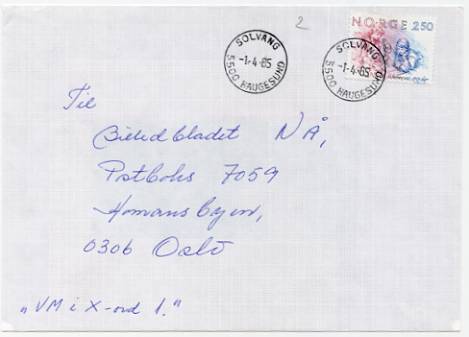 2
NORGE 250
SOLVANG
-1-4-85
5500 HAUGESUND
SOLVANG
-1-4-85
5500 HAUGESUND
Til
Billedbladet NÅ,
Postboks 7059
Homansbyen,
0306 Oslo
"VM i X-ord 1."